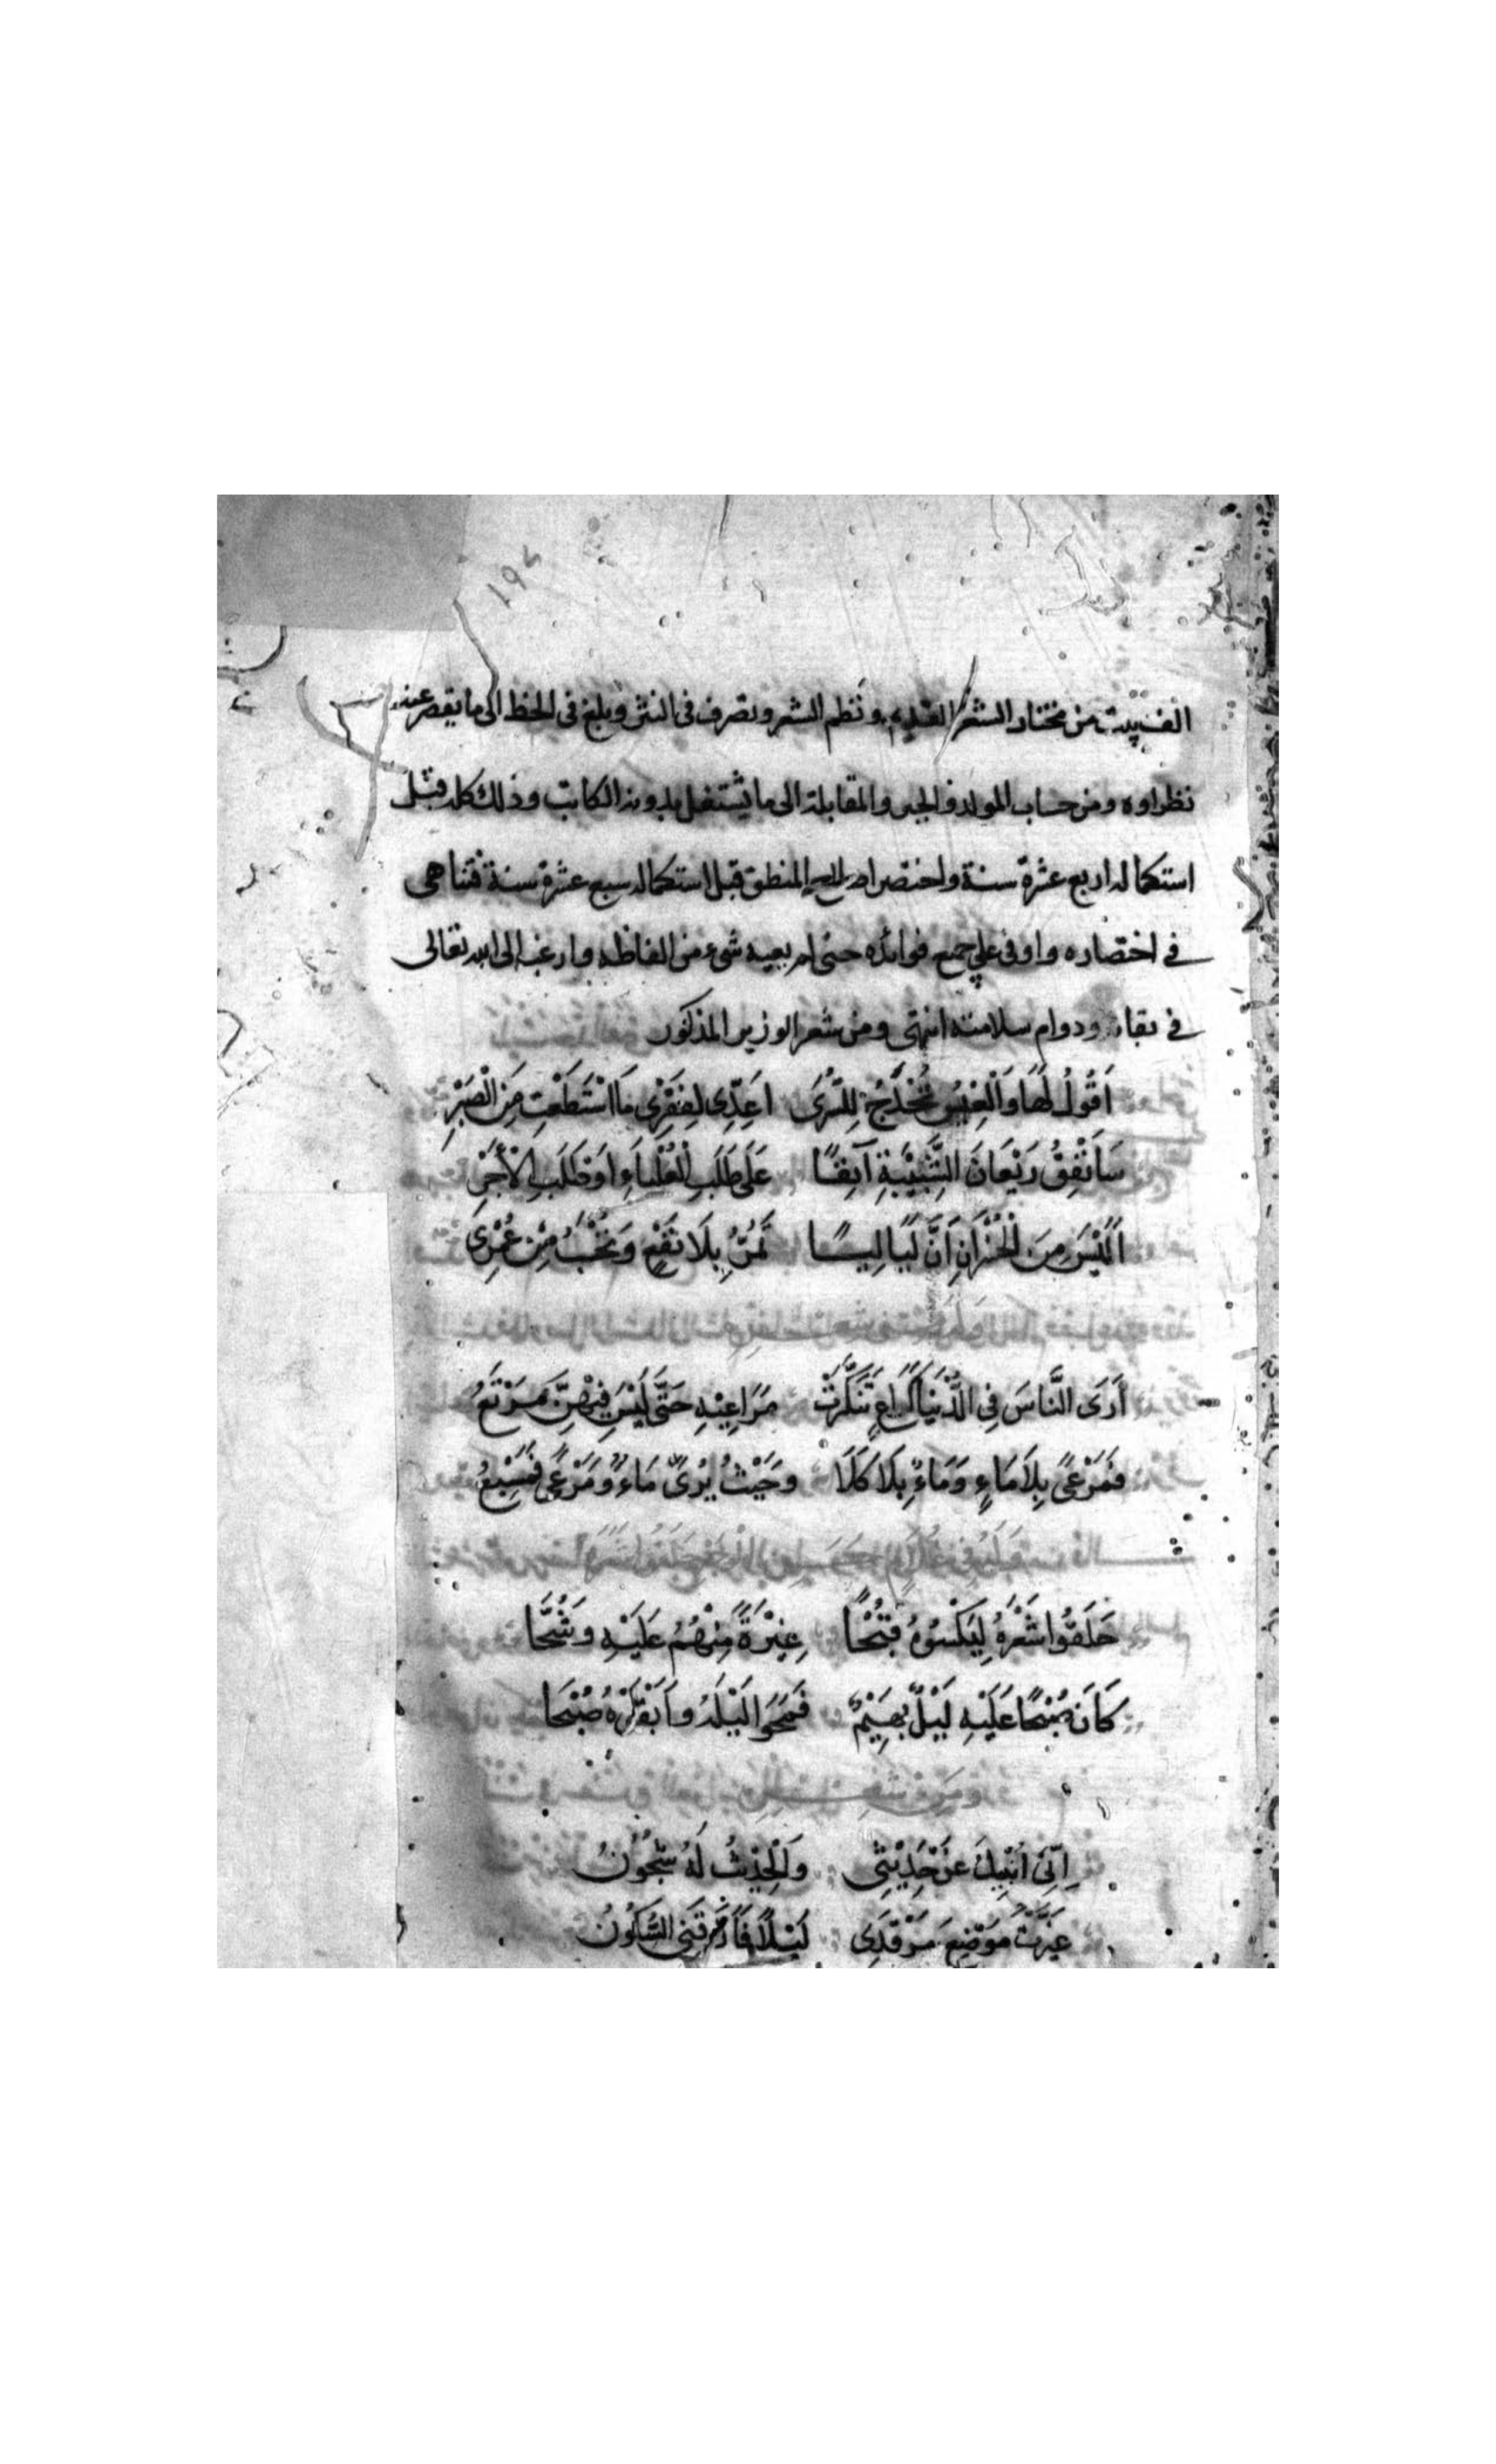 ١٩٤
الف بيت من مختار الشعر القديم ونظم الشعر وتصرف في النثر وبلغ في الخط الى ما يقصر عنه
نظراوه ومن حساب المولد والجبر والمقابلة الى ما يشتغل بدونه الكاتب وذلك كله قبل
استكماله اربع عشرة سنة واختصر اصلاح المنطق قبل استكماله سبع عشرة سنة فتناهى
في اختصاره واوفى على جميع فوائده حتى لم يعيه شيء من الفاظه وارغب الى الله تعالى
في بقائه ودوام سلامته انتهى ومن شعر الوزير المذكور
اَقُولُ لَهَا وَالْعِيْسُ تُخْدَجُ لِلسُّرَى اَعِدِّى لِفَقْرِى مَا اسْتَطَعْتِ مِنَ الْصَبْرِ
سَاَنْفِقُ رَيْعَانَ الشَّبِيْبَةِ آنِفًا عَلَى طَلَبِ الْعُلْيَاءِ اَوْ طَلَبِ الْاَجْرِ
اَلَيْسَ مِنَ الْخُسْرَانِ اَنَّ لَيَالِيًا تَمُرُّ بِلَا نَفْعٍ وَتُحْسَبُ مِنْ عُمْرِى
اَرَى النَّاسَ فِي الدُّنْيَا كَرَاعٍ تَنَكَّرَتْ مَرَاعِيْهِ حَتَّى لَيْسَ فِيْهِنَّ مَرْتَعُ
فَمَرْعًى بِلَا مَاءٍ وَمَاءٌ بِلَا كَلَا وَحَيْثُ يُرَى مَاءٌ وَمَرْعًى فَمَسْبَعُ
حَلَقُوا شَعْرَهُ لِيَكْسُوْهُ قُبْحًا غِيْرَةً مِنْهُمُ عَلَيْهِ وَشُحَّا
كَانَ صُبْحًا عَلَيْهِ لَيْلٌ بَهِيْمٌ فَمَحَوا لَيْلَهُ وَاَبْقَوْهُ صُبْحَا
اِنِّى اُنْبِيْكَ عَنْ حَدِيْثِى وَالْحَدِيْثُ لَهُ شُجُوْنُ
غَيَّرْتُ مَوْضِعَ مَرْقَدِى لَيْلًا فَفَارَقَنِى السُّكُوْنُ